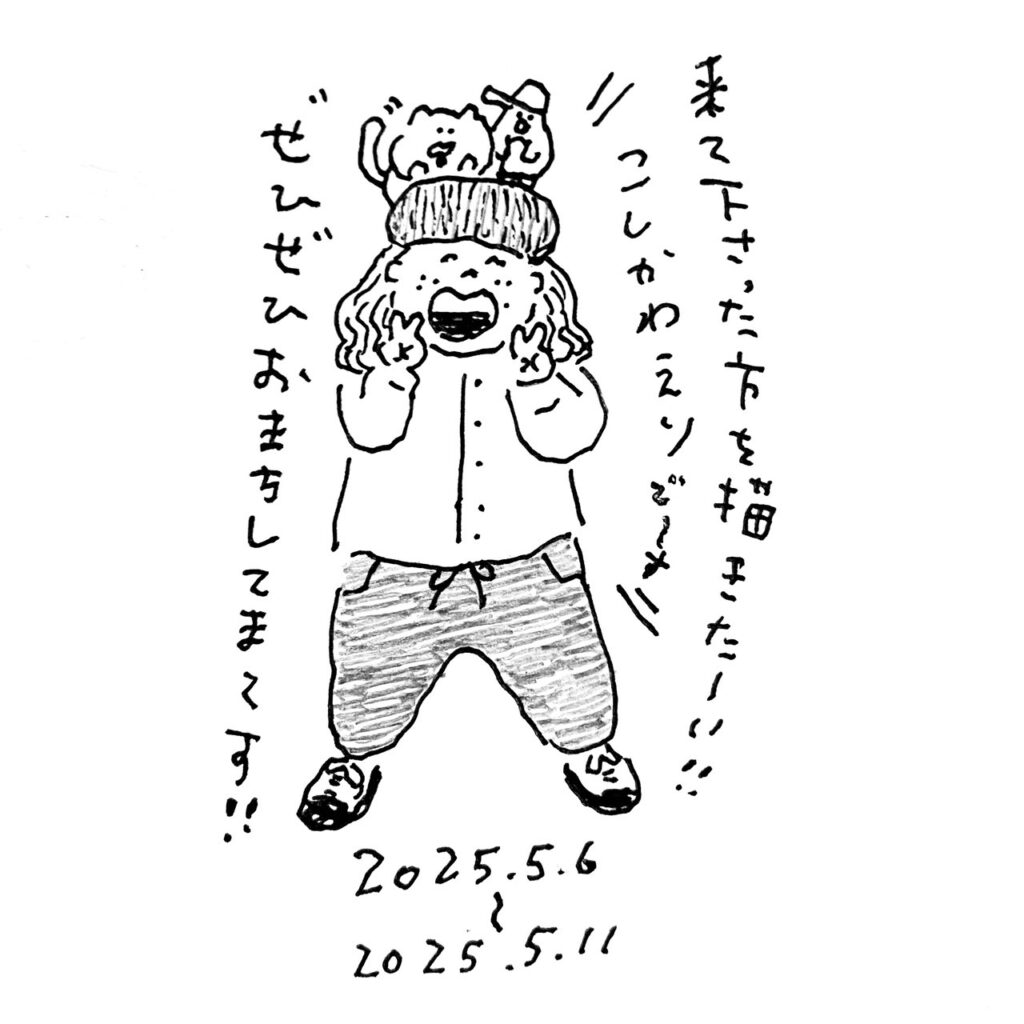 来て下さった方を描きたーい!!
こしかわえりぞ〜め
ぜひぜひおまちしてます!!
2025.5.6
〜
2025.5.11